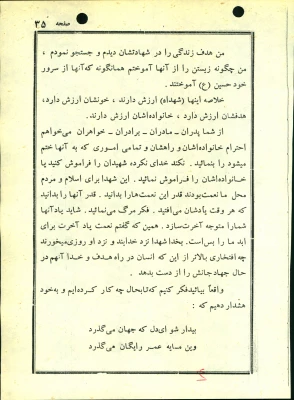 صفحه ۳۵
من هدف زندگی را در شهادتشان دیدم و جستجو نمودم ،
من چگونه زیستن را از آنها آموختم همانگونه که آنها از سرور
خود حسین (ع) آموختند .
خلاصه اینها (شهداء) ارزش دارند ، خونشان ارزش دارد،
هدفشان ارزش دارد ، خانواده‌اشان ارزش دارند.
از شما پدران ـ مادران ـ برادران ـ خواهران می‌خواهم
احترام خانواده‌اشان و راهشان و تمامی اموری که به آنها ختم
میشود را بنمائید . نکند خدای نکرده شهیدان را فراموش کنید یا
خانواده‌اشان را فراموش نمائید . این شهدا برای اسلام و مردم
محل ما نعمت بودند قدر این نعمت‌ها را بدانید . قدر آنها را بدانید
که هر وقت یادشان می‌افتید . فکر مرگ می‌نمائید . شاید یاد آنها
شما را متوجه آخرت سازد . همین که گفتم نعمت یاد آخرت برای
ابد ما را بس است. بخدا شهدا نزد خدایند و نزد او روزی میخورند
چه افتخاری بالاتر از این که انسان در راه هدف و خدا آنهم در
حال جهاد جانش را از دست بدهد .
واقعاً بیائید فکر کنیم که تابحال چه کار کرده‌ایم و به خود
هشدار دهیم که :
بیدار شو ای دل که جهان می‌گذرد
وین مایه عمر رایگان می‌گذرد